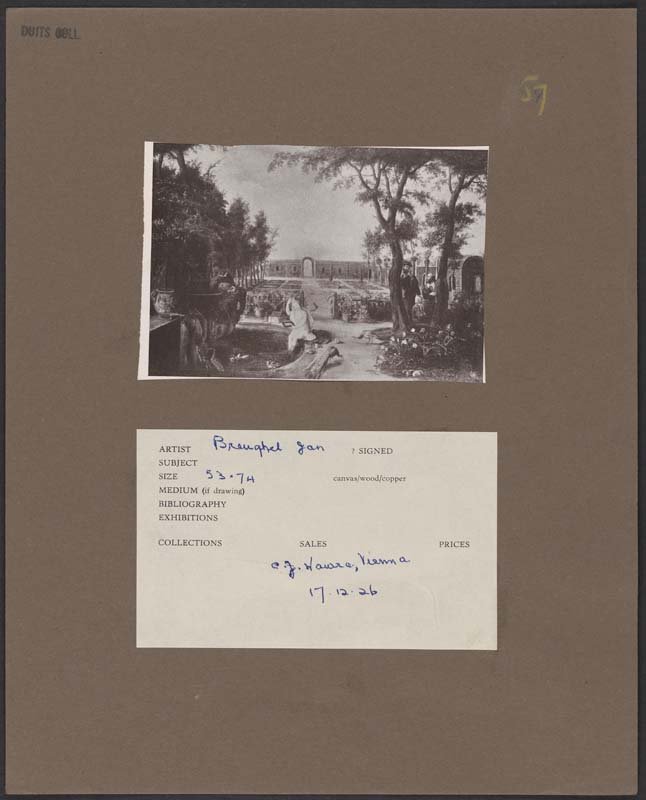 DUITS COLL.
57
ARTIST Breughel Jan ? SIGNED
SUBJECT
SIZE 53.74 canvas/wood/copper
MEDIUM (if drawing)
BIBLIOGRAPHY
EXHIBITIONS
COLLECTIONS SALES PRICES
C.J. Wawra, Vienna
17.12.26